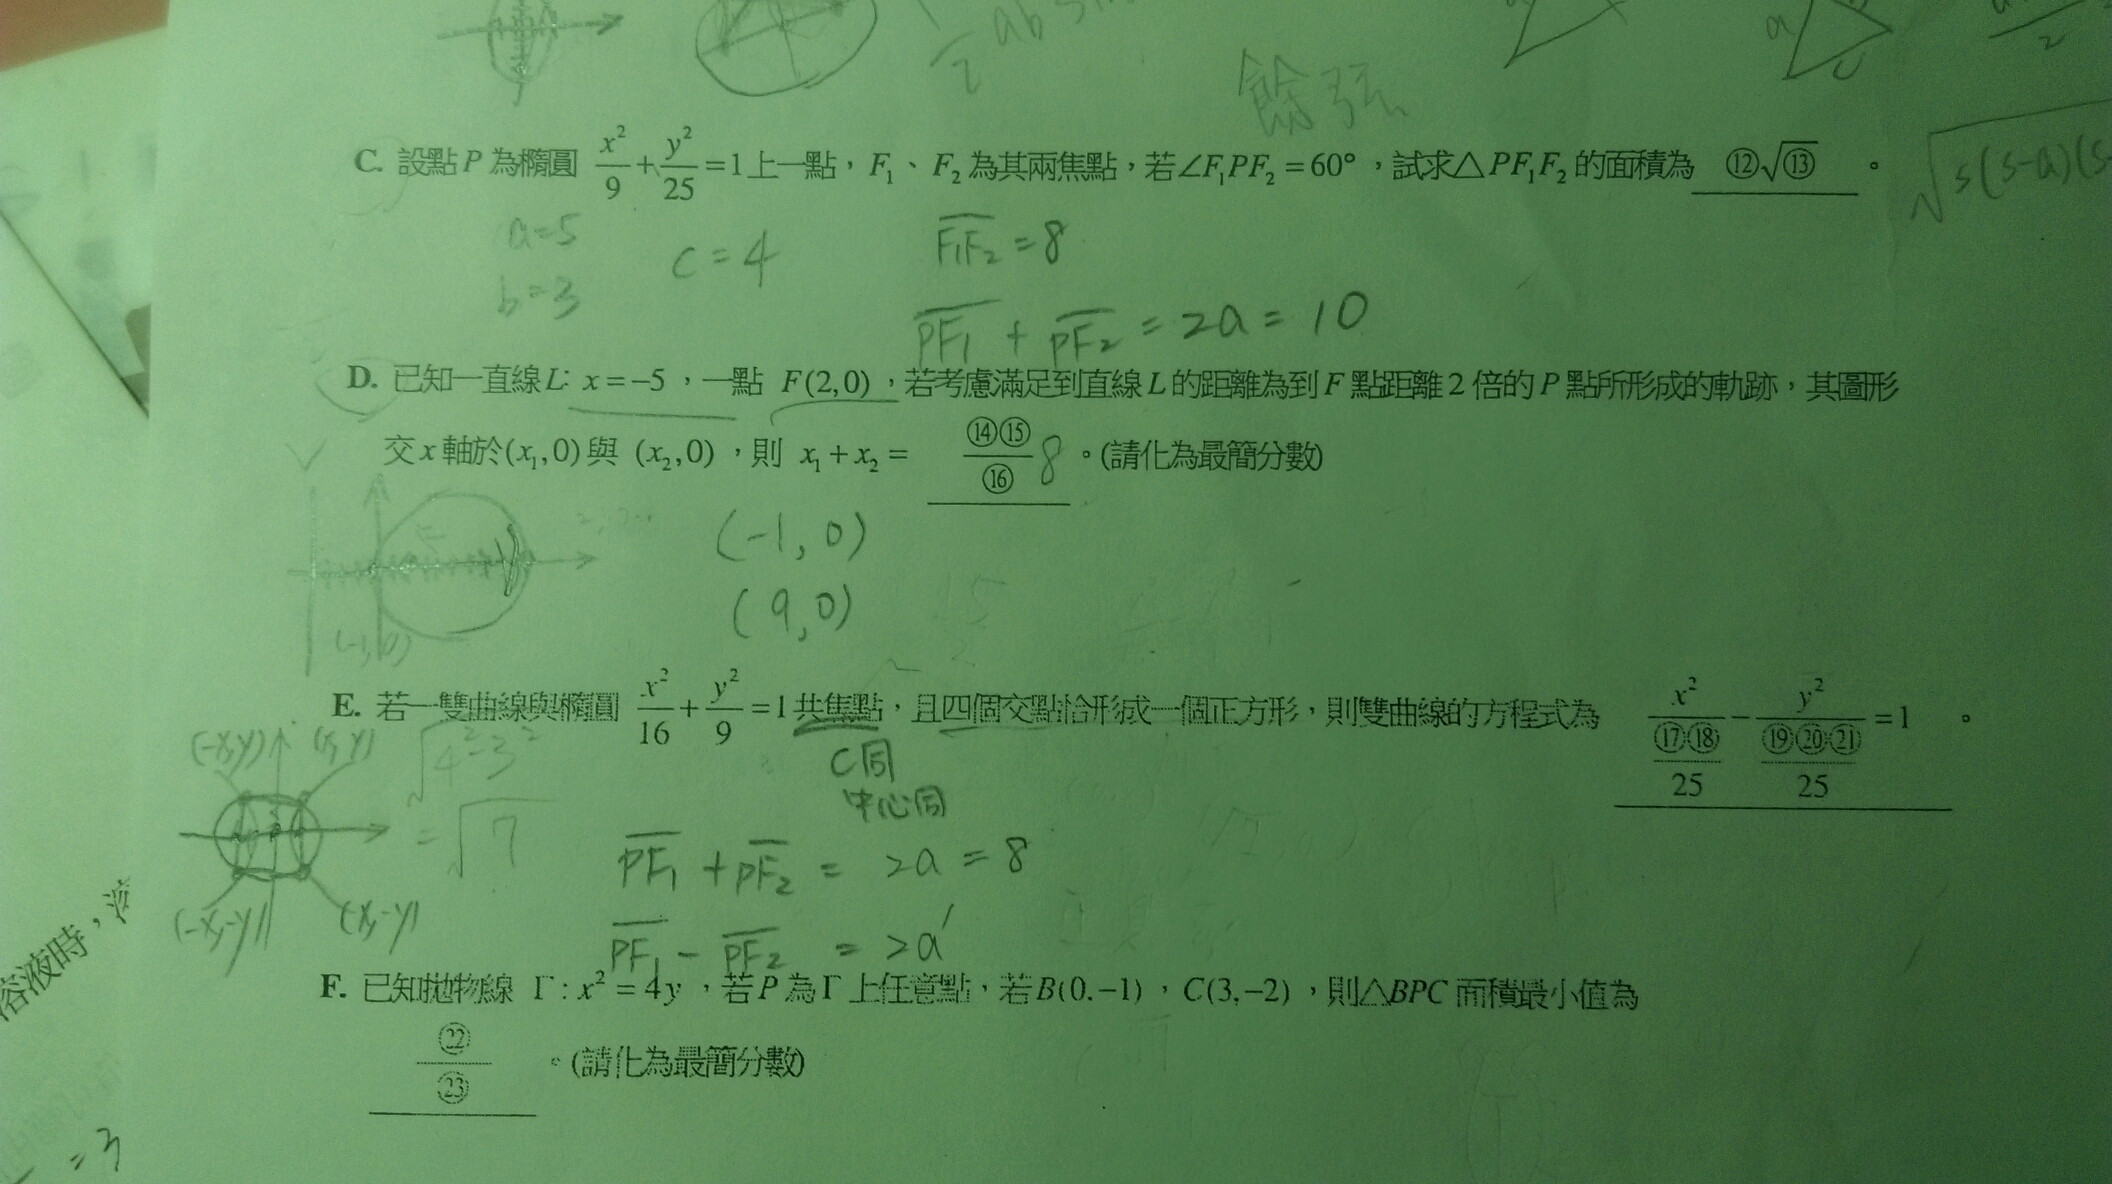 1/2 ab
a
2
餘弦
C. 設點P為橢圓 x²/9 + y²/25 = 1上一點，F₁、F₂為其兩焦點，若∠F₁PF₂ = 60°，試求△PF₁F₂的面積為 ⑫√⑬ 。
√s(s-a)(s-
a=5
b=3
c=4
F₁F₂ = 8
PF₁ + PF₂ = 2a = 10
D. 已知一直線L: x = −5，一點 F(2,0)，若考慮滿足到直線L的距離為到F點距離2倍的P點所形成的軌跡，其圖形
交x軸於(x₁,0)與 (x₂,0)，則 x₁ + x₂ = ⑭⑮/⑯ 8 。(請化為最簡分數)
(-1,0)
(9,0)
(-1,0)
E. 若一雙曲線與橢圓 x²/16 + y²/9 = 1共焦點，且四個交點恰形成一個正方形，則雙曲線的方程式為 x²/(⑰⑱/25) − y²/(⑲⑳㉑/25) = 1 。
(-x,y) (x,y)
√4²-3²
= √7
C同
中心同
(-x,-y) (x,-y)
PF₁ + PF₂ = 2a = 8
PF₁ - PF₂ = 2a'
F. 已知拋物線 Γ : x² = 4y，若P為Γ上任意點，若B(0,−1)，C(3,−2)，則△BPC面積最小值為
㉒/㉓ 。(請化為最簡分數)
溶液時，
=3